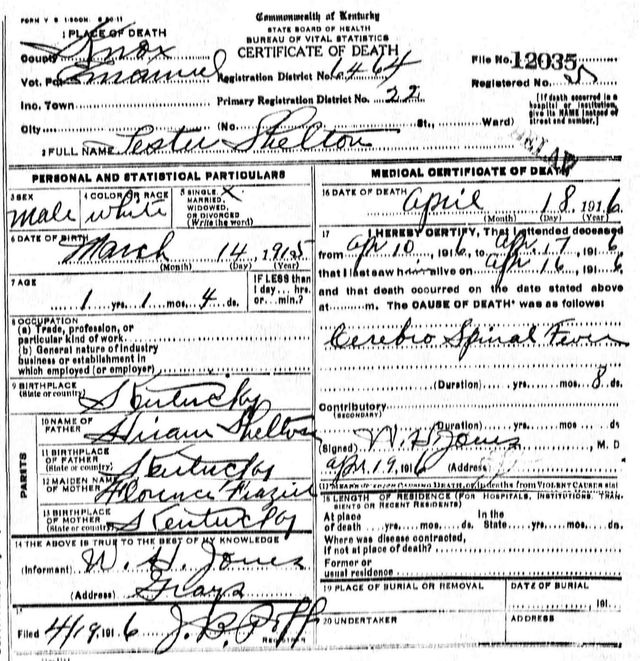 FORM V S 1-500M. 8 30 11
Commonwealth of Kentucky
STATE BOARD OF HEALTH
BUREAU OF VITAL STATISTICS
CERTIFICATE OF DEATH
1 PLACE OF DEATH
County Knox
File No. 12035
Vot. Pct. Emanuel Registration District No. 6464
Registered No.
Inc. Town Primary Registration District No. 22
[If death occurred in a hospital or institution, give its NAME instead of street and number.]
City (No. St., Ward)
2 FULL NAME Lester Shelton
PERSONAL AND STATISTICAL PARTICULARS
3 SEX male
4 COLOR OR RACE white
5 SINGLE, X
MARRIED,
WIDOWED,
OR DIVORCED
(Write the word)
6 DATE OF BIRTH March 14, 1915
(Month) (Day) (Year)
7 AGE
1 yrs. 1 mos. 4 ds.
IF LESS than
1 day... hrs.
or... min.?
8 OCCUPATION
(a) Trade, profession, or
particular kind of work
(b) General nature of industry
business or establishment in
which employed (or employer)
9 BIRTHPLACE
(State or country) Kentucky
PARENTS
10 NAME OF
FATHER Hiram Shelton
11 BIRTHPLACE
OF FATHER
(State or country) Kentucky
12 MAIDEN NAME
OF MOTHER Florence Frazier
13 BIRTHPLACE
OF MOTHER
(State or country) Kentucky
14 THE ABOVE IS TRUE TO THE BEST OF MY KNOWLEDGE
(Informant) W. H. Jones
(Address) Grays
15
Filed 4/19 1916 J. B.
REGISTRAR
MEDICAL CERTIFICATE OF DEATH
16 DATE OF DEATH April 18, 1916
(Month) (Day) (Year)
17 I HEREBY CERTIFY, That I attended deceased
from Apr 10, 1916, to Apr. 17, 1916
that I last saw him alive on Apr 16, 1916
and that death occurred on the date stated above
at m. The CAUSE OF DEATH* was as follows:
Cerebro Spinal Fever
(Duration) yrs. mos. 8 ds.
Contributory
(SECONDARY)
(Duration) yrs. mos. ds
(Signed) W. H. Jones, M. D
Apr. 19, 1916 (Address)
18 LENGTH OF RESIDENCE (FOR HOSPITALS, INSTITUTIONS, TRANSIENTS OR RECENT RESIDENTS)
At place In the
of death yrs. mos. ds. State yrs. mos. ds.
Where was disease contracted,
if not at place of death?
Former or
usual residence
19 PLACE OF BURIAL OR REMOVAL
DATE OF BURIAL
, 191
20 UNDERTAKER
ADDRESS